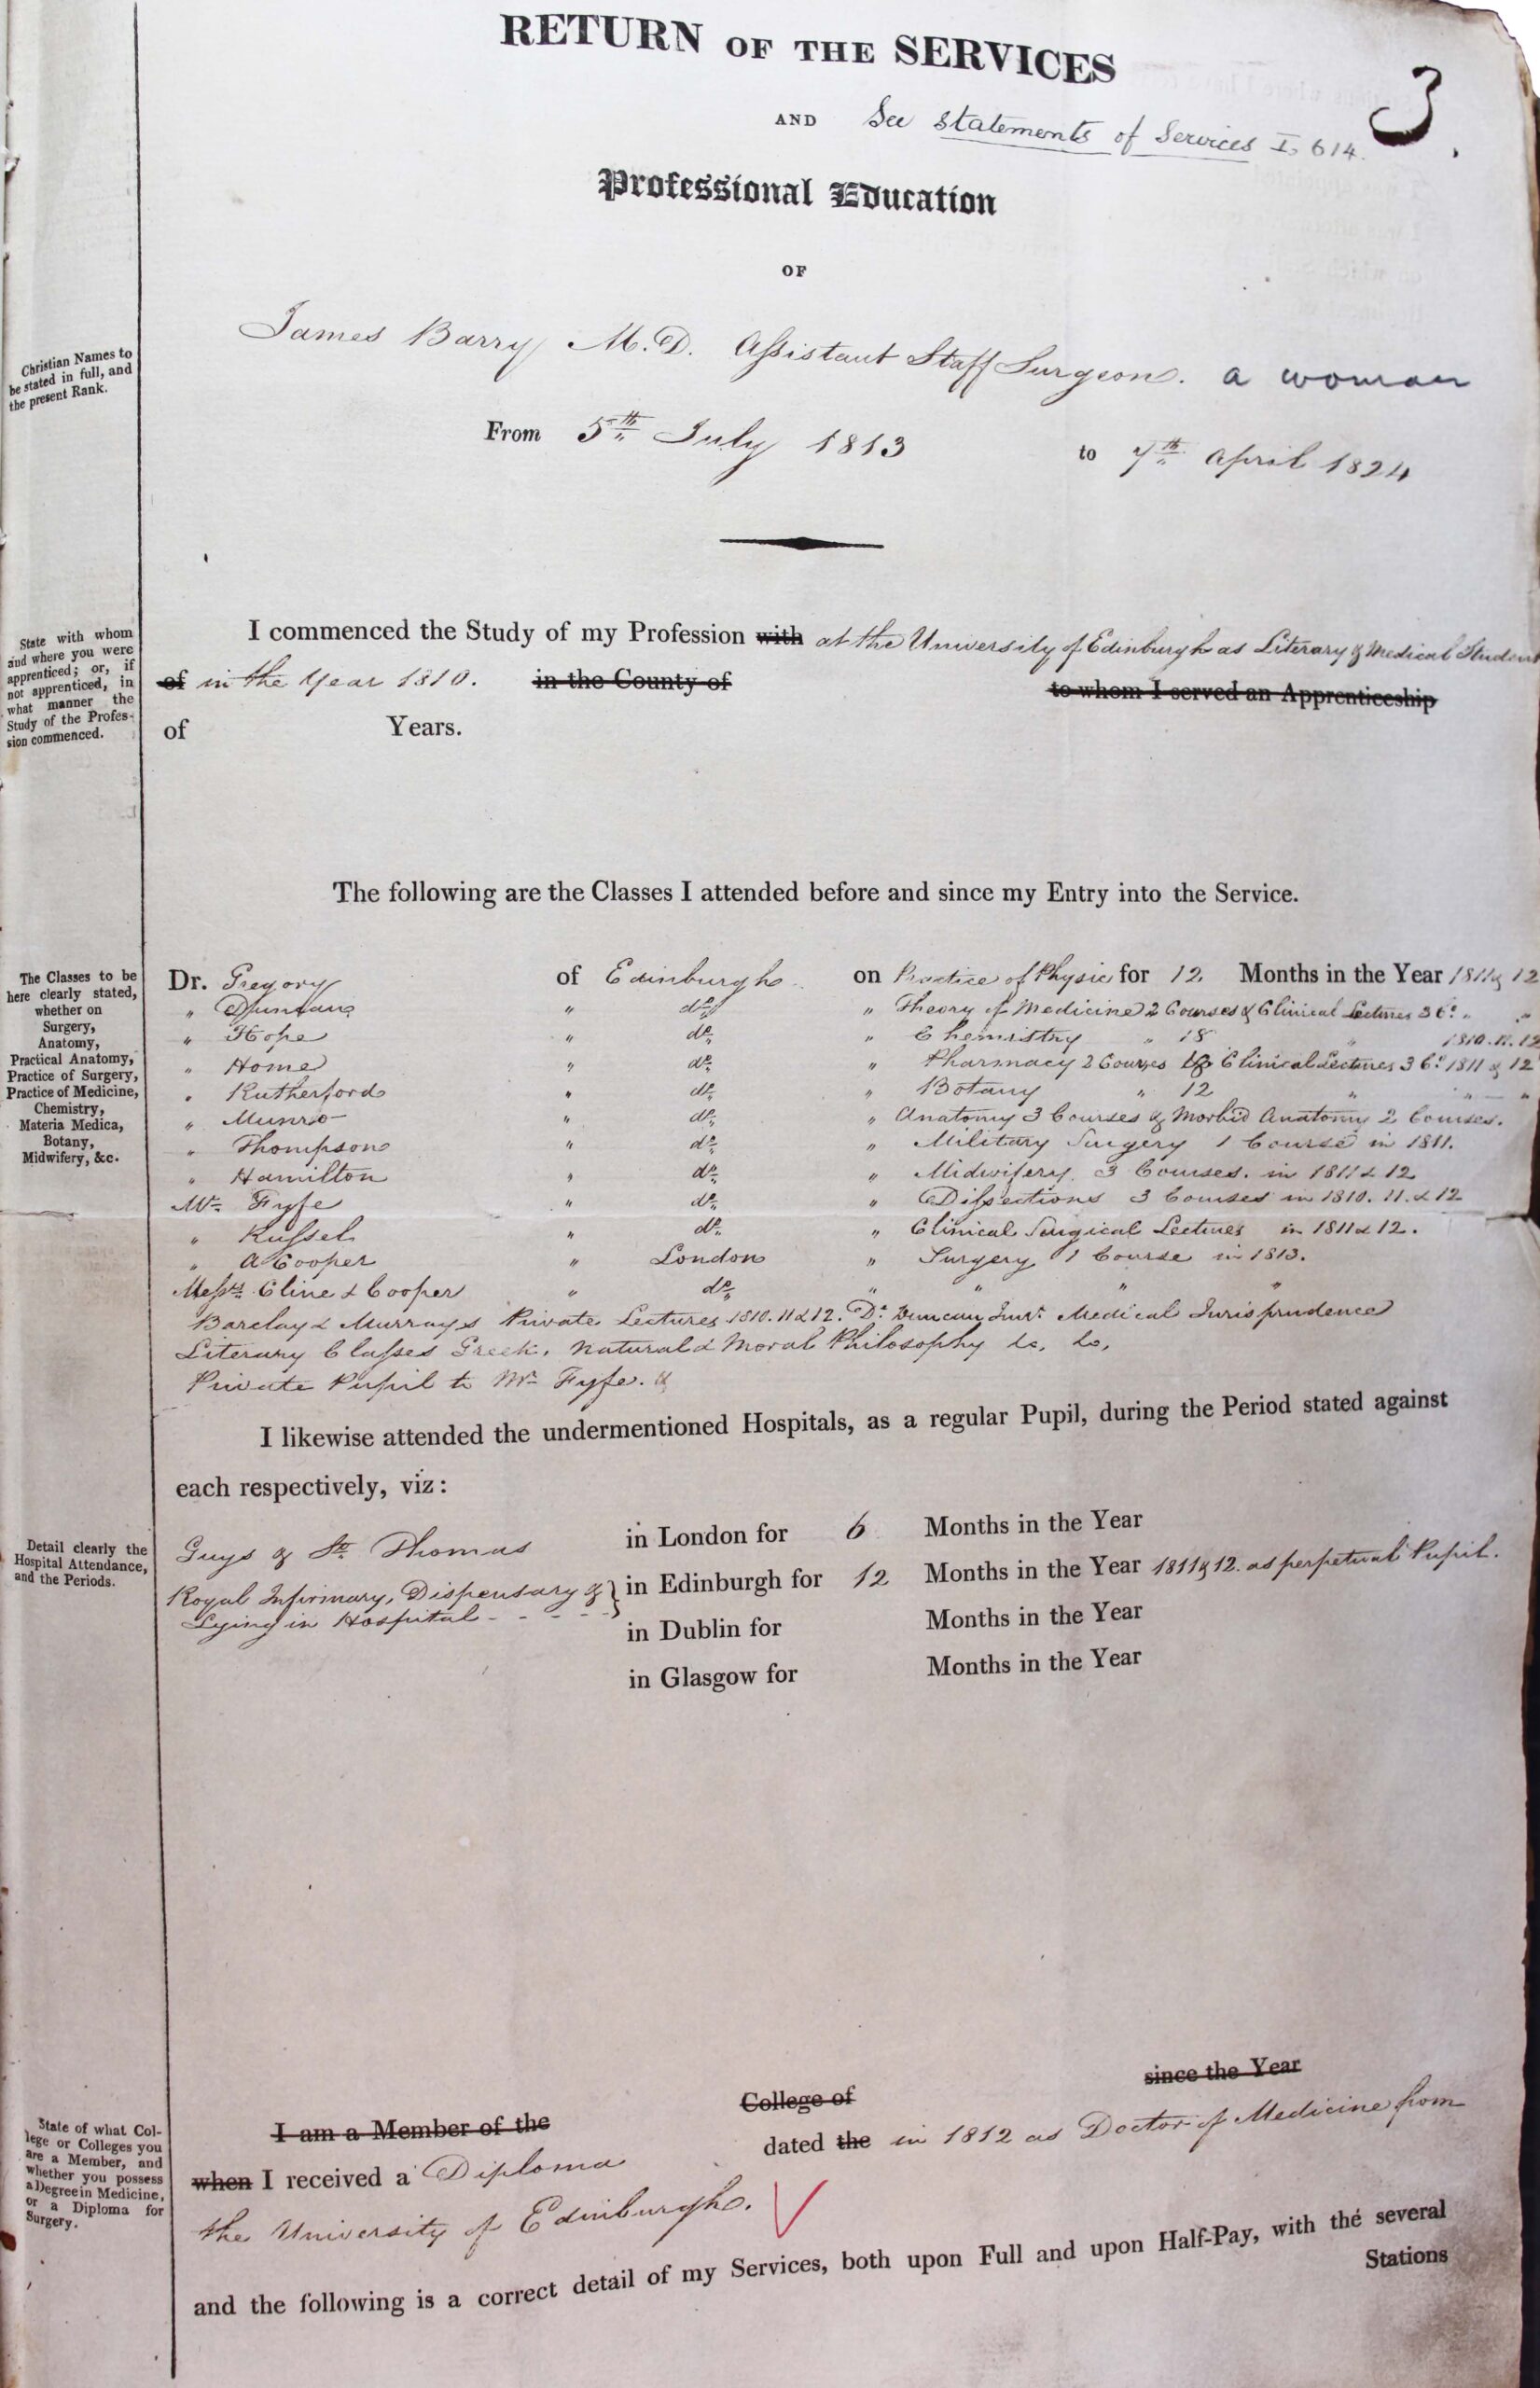 RETURN OF THE SERVICES
3.
AND See statements of Services I, 614.
Professional Education
OF
Christian Names to
be stated in full, and
the present Rank.
James Barry M.D. Assistant Staff Surgeon. a woman
From 5th July 1813 to 7th April 1824
State with whom
and where you were
apprenticed; or, if
not apprenticed, in
what manner the
Study of the Profes-
sion commenced.
I commenced the Study of my Profession with at the University of Edinburgh as Literary & Medical Student
of in the Year 1810. in the County of to whom I served an Apprenticeship
of Years.
The following are the Classes I attended before and since my Entry into the Service.
The Classes to be
here clearly stated,
whether on
Surgery,
Anatomy,
Practical Anatomy,
Practice of Surgery,
Practice of Medicine,
Chemistry,
Materia Medica,
Botany,
Midwifery, &c.
Dr. Gregory of Edinburgh on Practice of Physic for 12 Months in the Year 1811 & 12
" Duncan " do " Theory of Medicine 2 Courses & Clinical Lectures 3 Co. " "
" Hope " do " Chemistry " 18 " 1810. 11. 12
" Home " do " Pharmacy 2 Courses & Clinical Lectures 3 Co. 1811 & 12
" Rutherford " do " Botany " 12 " " "
" Munro " do " Anatomy 3 Courses & Morbid Anatomy 2 Courses.
" Thompson " do " Military Surgery 1 Course in 1811.
" Hamilton " do " Midwifery 3 Courses. in 1811 & 12
Mr. Fyfe " do " Dissections 3 Courses in 1810. 11. & 12
" Russel " do " Clinical Surgical Lectures in 1811 & 12.
" A Cooper " London " Surgery 1 Course in 1813.
Messrs. Cline & Cooper " do " " " "
Barclay & Murrays Private Lectures 1810. 11 & 12. Dr. Duncan Junr. Medical Jurisprudence
Literary Classes Greek, Natural & Moral Philosophy &c, &c,
Private Pupil to Mr Fyfe. &
I likewise attended the undermentioned Hospitals, as a regular Pupil, during the Period stated against
each respectively, viz:
Detail clearly the
Hospital Attendance,
and the Periods.
Guys & St. Thomas in London for 6 Months in the Year
Royal Infirmary, Dispensary & } in Edinburgh for 12 Months in the Year 1811 & 12. as perpetual Pupil.
Lying in Hospital - - - -
in Dublin for Months in the Year
in Glasgow for Months in the Year
State of what Col-
lege or Colleges you
are a Member, and
whether you possess
a Degree in Medicine,
or a Diploma for
Surgery.
I am a Member of the College of since the Year
when I received a Diploma dated the in 1812 as Doctor of Medicine from
the University of Edinburgh.
and the following is a correct detail of my Services, both upon Full and upon Half-Pay, with the several
Stations